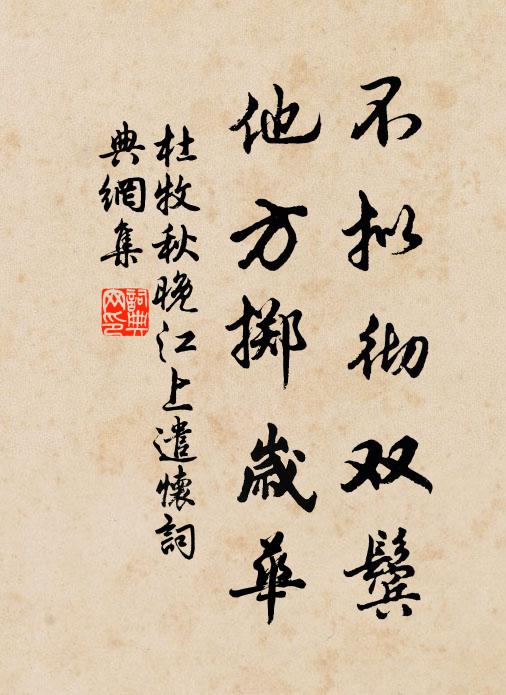 不拟彻双鬓
他方掷岁华
杜牧秋晚江上遣懷詞
典網集
詞典
网印